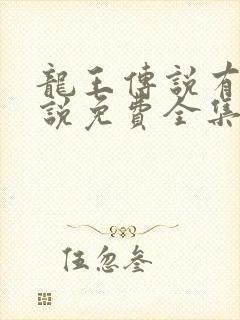 龍王傳說有
說免費全集
伍忽叁